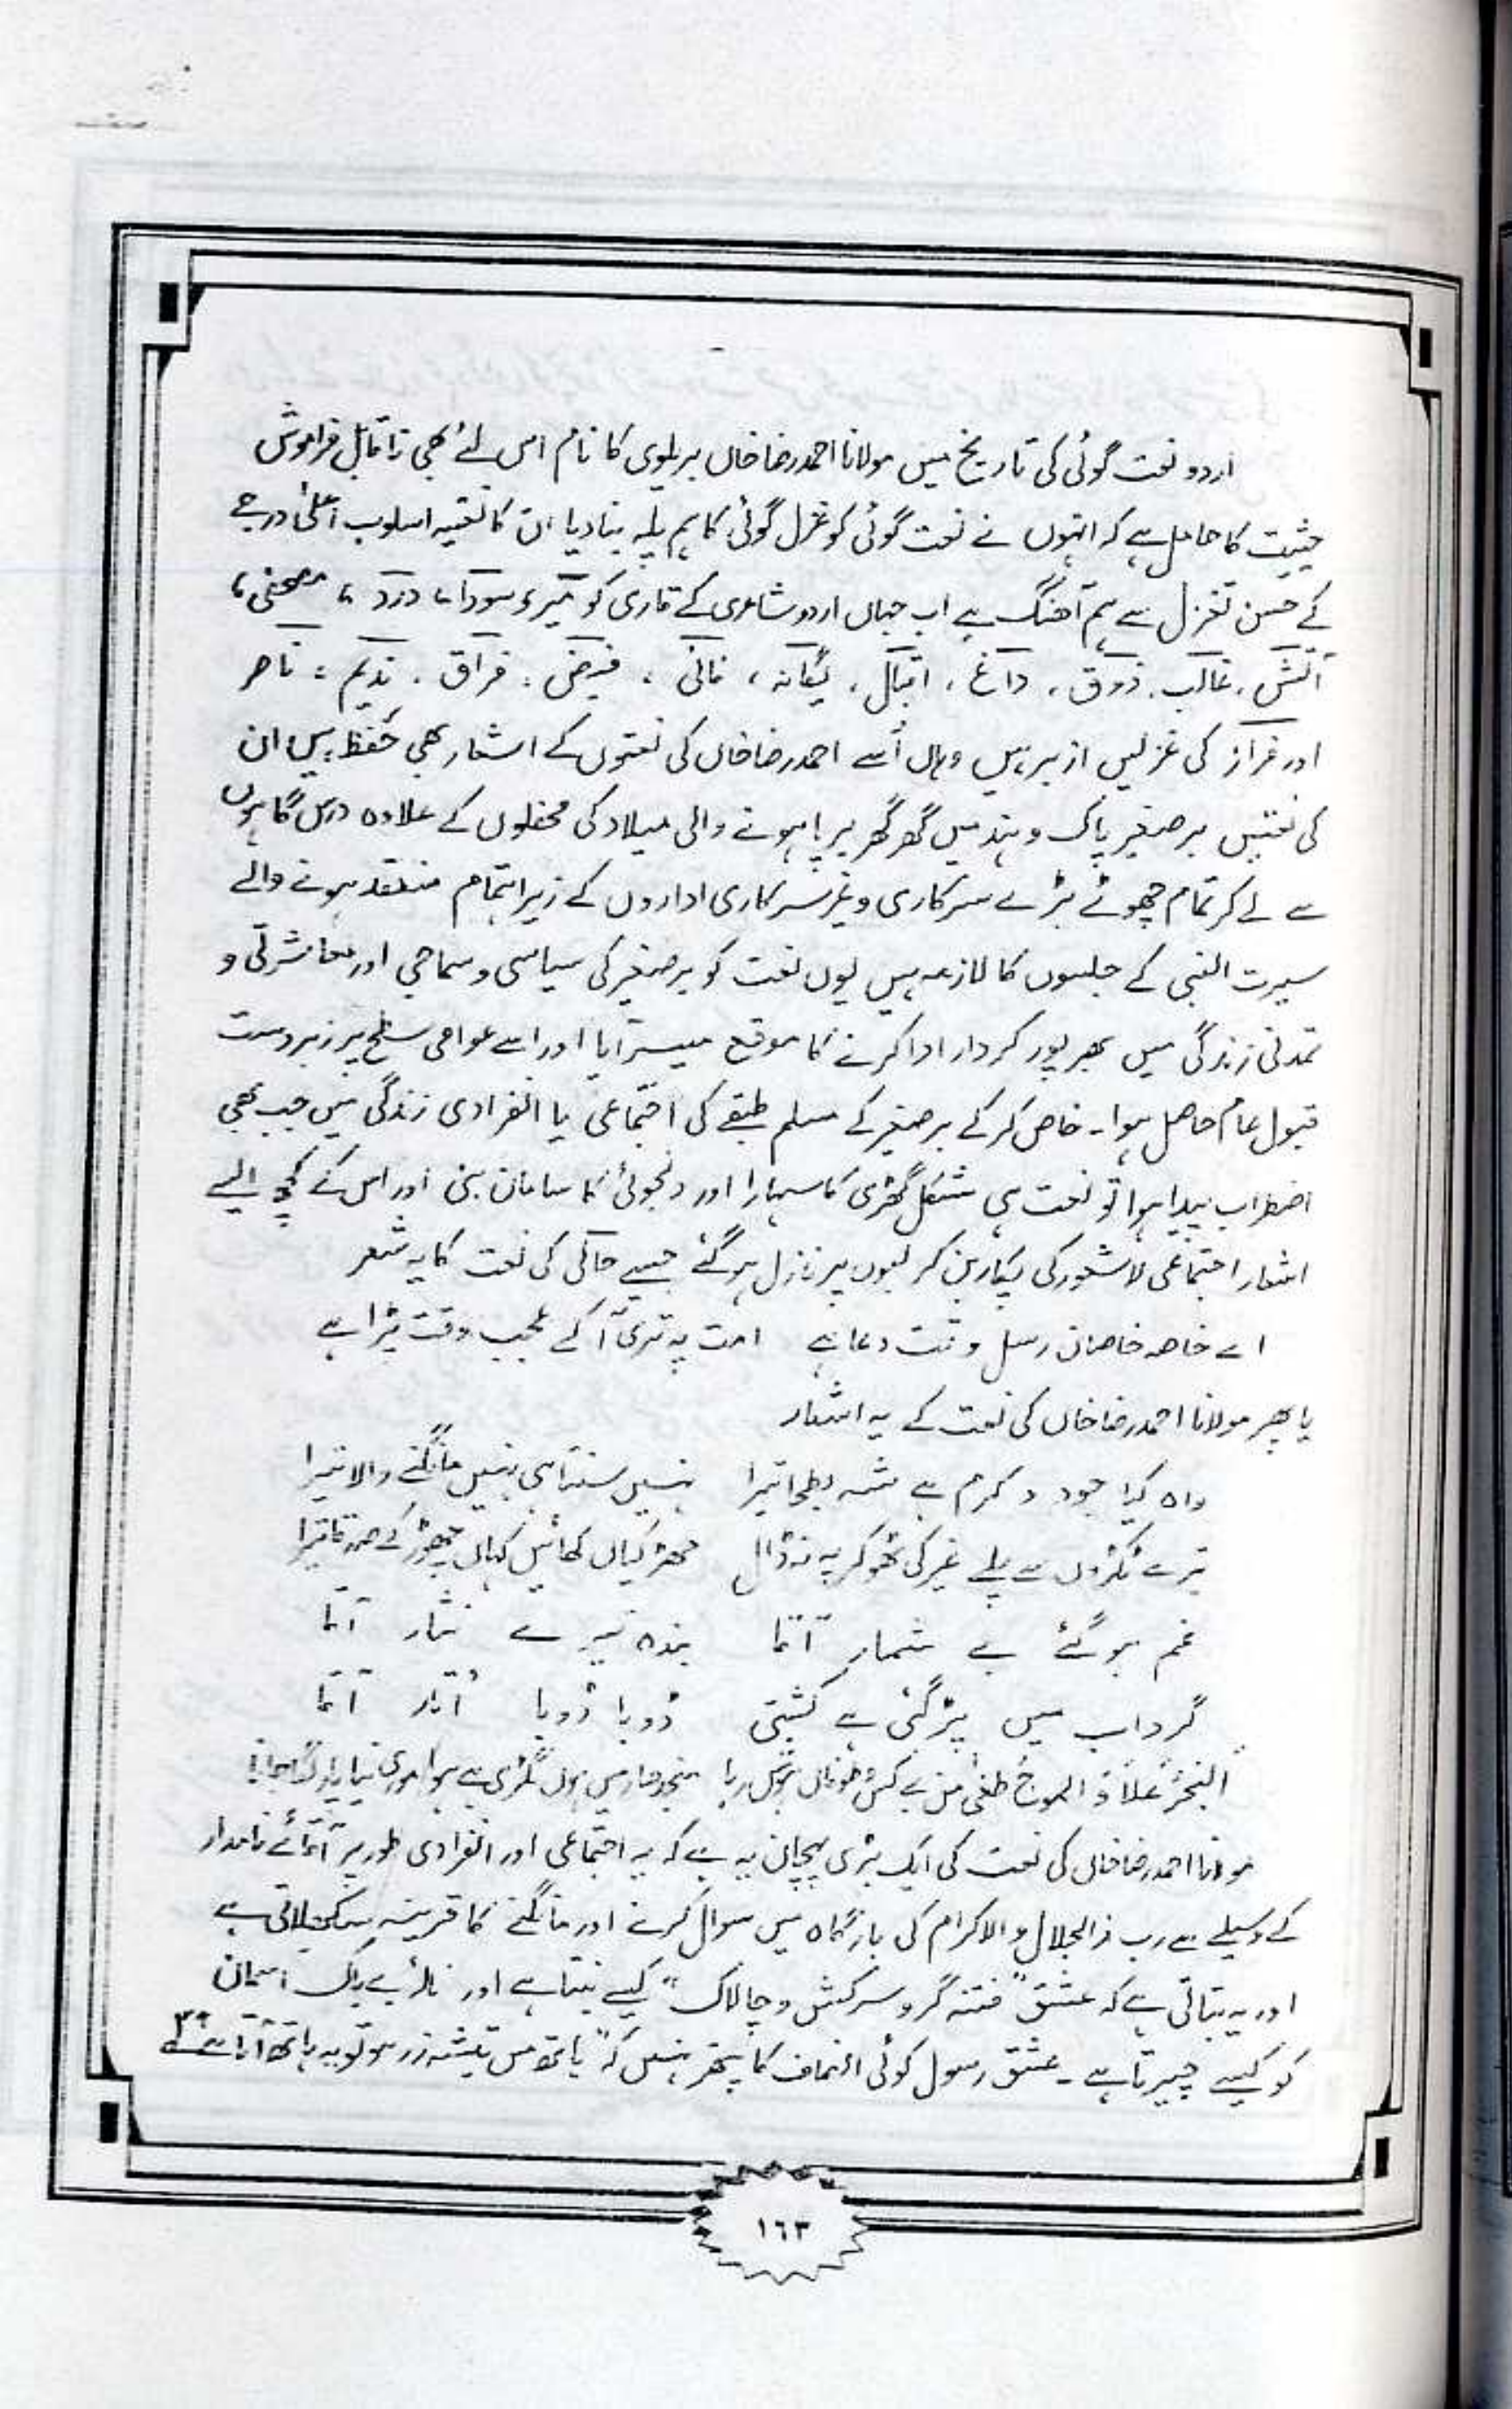 اردو نعت گوئی کی تاریخ میں مولانا احمد رضا خاں بریلوی کا نام اس لئے بھی ناقابل فراموش
حیثیت کا حامل ہے کہ انہوں نے نعت گوئی کو غزل گوئی کا ہم پلہ بنا دیا ان کا نعتیہ اسلوب اعلیٰ درجے
کے حسن تغزل سے ہم آہنگ ہے اب جہاں اردو شاعری کے قاری کو میر، سودا، درد، مصحفی،
آتش، غالب، ذوق، داغ، اقبال، یگانہ، فانی، فیض، فراق، ندیم، ناصر
اور فراز کی غزلیں ازبر ہیں وہاں اُسے احمد رضا خاں کی نعتوں کے اشعار بھی حفظ ہیں ان
کی نعتیں برصغیر پاک و ہند میں گھر گھر برپا ہونے والی میلاد کی محفلوں کے علاوہ درس گاہوں
سے لے کر تمام چھوٹے بڑے سرکاری و غیر سرکاری اداروں کے زیر اہتمام منعقد ہونے والے
سیرت النبی کے جلسوں کا لازمہ ہیں یوں نعت کو برصغیر کی سیاسی و سماجی اور معاشرتی و
تمدنی زندگی میں بھرپور کردار ادا کرنے کا موقع میسر آیا اور اسے عوامی سطح پر زبردست
قبول عام حاصل ہوا۔ خاص کر کے برصغیر کے مسلم طبقے کی اجتماعی یا انفرادی زندگی میں جب بھی
اضطراب پیدا ہوا تو نعت ہی مشکل گھڑی کا سہارا اور دلجوئی کا سامان بنی اور اس کے کچھ ایسے
اشعار اجتماعی لاشعور کی پکار بن کر لبوں پر نازل ہو گئے جیسے حالی کی نعت کا یہ شعر
اے خاصہ خاصان رسل وقت دعا ہے امت پہ تری آ کے عجب وقت پڑا ہے
یا پھر مولانا احمد رضا خاں کی نعت کے یہ اشعار
واہ کیا جود و کرم ہے شہ بطحا تیرا نہیں سنتا ہی نہیں مانگنے والا تیرا
تیرے ٹکڑوں سے پلے غیر کی ٹھوکر پہ نہ ڈال جھڑکیاں کھائیں کہاں چھوڑ کے صدقہ تیرا
غم ہو گئے بے شمار آقا بندہ تیرے نثار آقا
گرداب میں پڑ گئی ہے کشتی ڈوبا ڈوبا اُتار آقا
البحرُ عَلَا وَ الموجُ طغیٰ من بے کس و طوفاں ہوش ربا منجدھار میں ہوں بگڑی ہے ہوا موری نیا پار لگا جانا
مولانا احمد رضا خاں کی نعت کی ایک بڑی پہچان یہ ہے کہ یہ اجتماعی اور انفرادی طور پر آقائے نامدار
کے وسیلے سے رب ذالجلال والاکرام کی بارگاہ میں سوال کرنے اور مانگنے کا قرینہ سکھلاتی ہے
اور یہ بتاتی ہے کہ عشق "فتنہ گر و سرکش و چالاک" کیسے بنتا ہے اور نالۂ بے باک آسمان
کو کیسے چیرتا ہے۔ عشق رسول کوئی الہاف کا پتھر نہیں کہ "ہاتھ میں تیشہ زر ہو تو یہ ہاتھ آتا ہے"
١٦٣